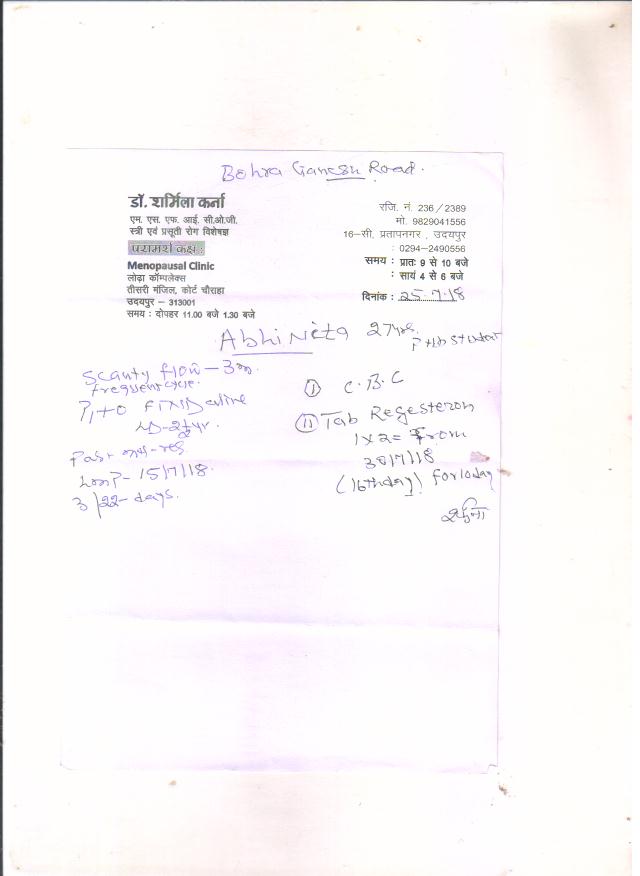 Bohra Ganesh Road.
डॉ. शर्मिला कर्ना
एम. एस. एफ. आई. सी.ओ.जी.
स्त्री एवं प्रसूती रोग विशेषज्ञ
परामर्श कक्ष :
Menopausal Clinic
लोढ़ा कॉम्पलेक्स
तीसरी मंजिल, कोर्ट चौराहा
उदयपुर – 313001
समय : दोपहर 11.00 बजे 1.30 बजे
रजि. नं. 236 / 2389
मो. 9829041556
16–सी, प्रतापनगर , उदयपुर
: 0294-2490556
समय : प्रातः 9 से 10 बजे
: सायं 4 से 6 बजे
दिनांक : 25.7.18
Abhineta 27yrs.
Student
Scanty flow – 3m.
frequent cycle.
P1+0 FTND alive
LD-2½yr.
Past m/h-reg.
LMP- 15/7/18.
3/22-days.
I C.B.C
II Tab Regesteron
1x2= From
30/7/18
(16th day) for 10 day